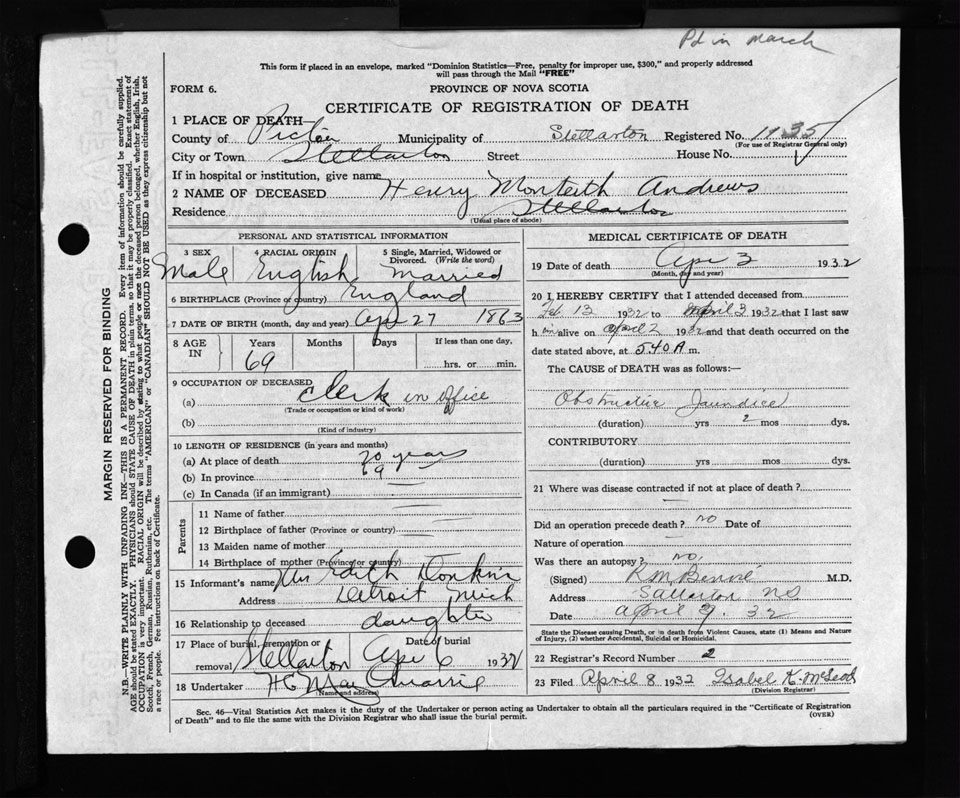 Pd in March
This form if placed in an envelope, marked "Dominion Statistics—Free, penalty for improper use, $300," and properly addressed
will pass through the Mail "FREE"
FORM 6.
PROVINCE OF NOVA SCOTIA
CERTIFICATE OF REGISTRATION OF DEATH
1 PLACE OF DEATH—
County of Pictou Municipality of Stellarton Registered No. 1135
(For use of Registrar General only)
City or Town Stellarton Street House No.
If in hospital or institution, give name
2 NAME OF DECEASED Henry Monteith Andrews
Residence Stellarton
(Usual place of abode)
PERSONAL AND STATISTICAL INFORMATION
3 SEX 4 RACIAL ORIGIN 5 Single, Married, Widowed or
Divorced. (Write the word)
Male English Married
6 BIRTHPLACE (Province or country) England
7 DATE OF BIRTH (month, day and year) Apr 27 1863
8 AGE IN Years Months Days If less than one day,
69 hrs. or min.
9 OCCUPATION OF DECEASED
(a) Clerk in office
(Trade or occupation or kind of work)
(b)
(Kind of industry)
10 LENGTH OF RESIDENCE (in years and months)
(a) At place of death 20 years
(b) In province 69
(c) In Canada (if an immigrant)
Parents
11 Name of father
12 Birthplace of father (Province or country)
13 Maiden name of mother
14 Birthplace of mother (Province or country)
15 Informant's name Mrs Edith Donkin
Address Detroit Mich
16 Relationship to deceased daughter
17 Place of burial, cremation or Date of burial
removal Stellarton Apr 6 1932
18 Undertaker H C MacQuarrie
(Name and address)
MEDICAL CERTIFICATE OF DEATH
19 Date of death Apr 3 1932
(Month, day and year)
20 I HEREBY CERTIFY that I attended deceased from
Feb 12 1932 to April 3 1932 that I last saw
h im alive on April 2 1932 and that death occurred on the
date stated above, at 5.40 A m.
The CAUSE of DEATH was as follows:—
Obstructive Jaundice
(duration) yrs 2 mos dys.
CONTRIBUTORY
(duration) yrs mos dys.
21 Where was disease contracted if not at place of death ?
Did an operation precede death ? no Date of
Nature of operation
Was there an autopsy ? no.
(Signed) M.D.
Address Stellarton NS
Date April 32
State the Disease causing Death, or in death from Violent Causes, state (1) Means and Nature
of Injury, (2) whether Accidental, Suicidal or Homicidal.
22 Registrar's Record Number 2
23 Filed April 8 1932 Isabel K. McLeod
(Division Registrar)
Sec. 46—Vital Statistics Act makes it the duty of the Undertaker or person acting as Undertaker to obtain all the particulars required in the "Certificate of Registration
of Death" and to file the same with the Division Registrar who shall issue the burial permit.
(OVER)
MARGIN RESERVED FOR BINDING
N.B.—WRITE PLAINLY WITH UNFADING INK—THIS IS A PERMANENT RECORD. Every item of information should be carefully supplied.
AGE should be stated EXACTLY. PHYSICIANS should STATE CAUSE OF DEATH in plain terms, so that it may be properly classified. Exact statement of
OCCUPATION is very important. RACIAL ORIGIN will be described by stating to what people or race the deceased person belonged, whether English, Irish,
Scotch, French, German, Russian, Ruthenian, etc. The terms "AMERICAN" or "CANADIAN" SHOULD NOT BE USED as they express citizenship but not
a race or people. See instructions on back of Certificate.